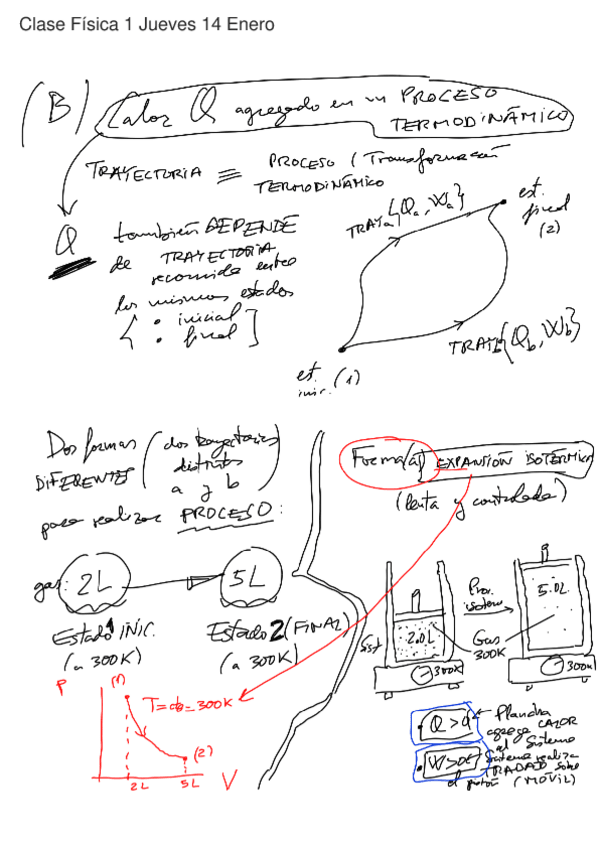 Clase Física 1 Jueves 14 Enero
(B) Calor Q agregado en un PROCESO
TERMODINÁMICO
TRAYECTORIA ≡ PROCESO (Transformación
TERMODINÁMICO
Q también DEPENDE
de TRAYECTORIA
recorrida entre
los mismos estados
{ • inicial
• final }
TRAY a {Qa, Wa}
est.
final
(2)
TRAY b {Qb, Wb}
est. (1)
inic.
Dos formas (dos trayectorias
DIFERENTES distintas
a y b)
para realizar PROCESO:
gas: 2L 5L
Estado 1 INIC. Estado 2 (FINAL)
(a 300K) (a 300K)
P (1) T = cte = 300K
(2)
2L 5L V
Forma (a) EXPANSIÓN ISOTÉRMICA
(lenta y controlada)
Sist 2.0L
Proc.
isoterm
5.0L
Gas
300K
300K 300K
Q>0 ← Plancha
agrega CALOR
al Sistema
W>0 Sistema realiza
TRABAJO sobre
el pistón (MÓVIL)